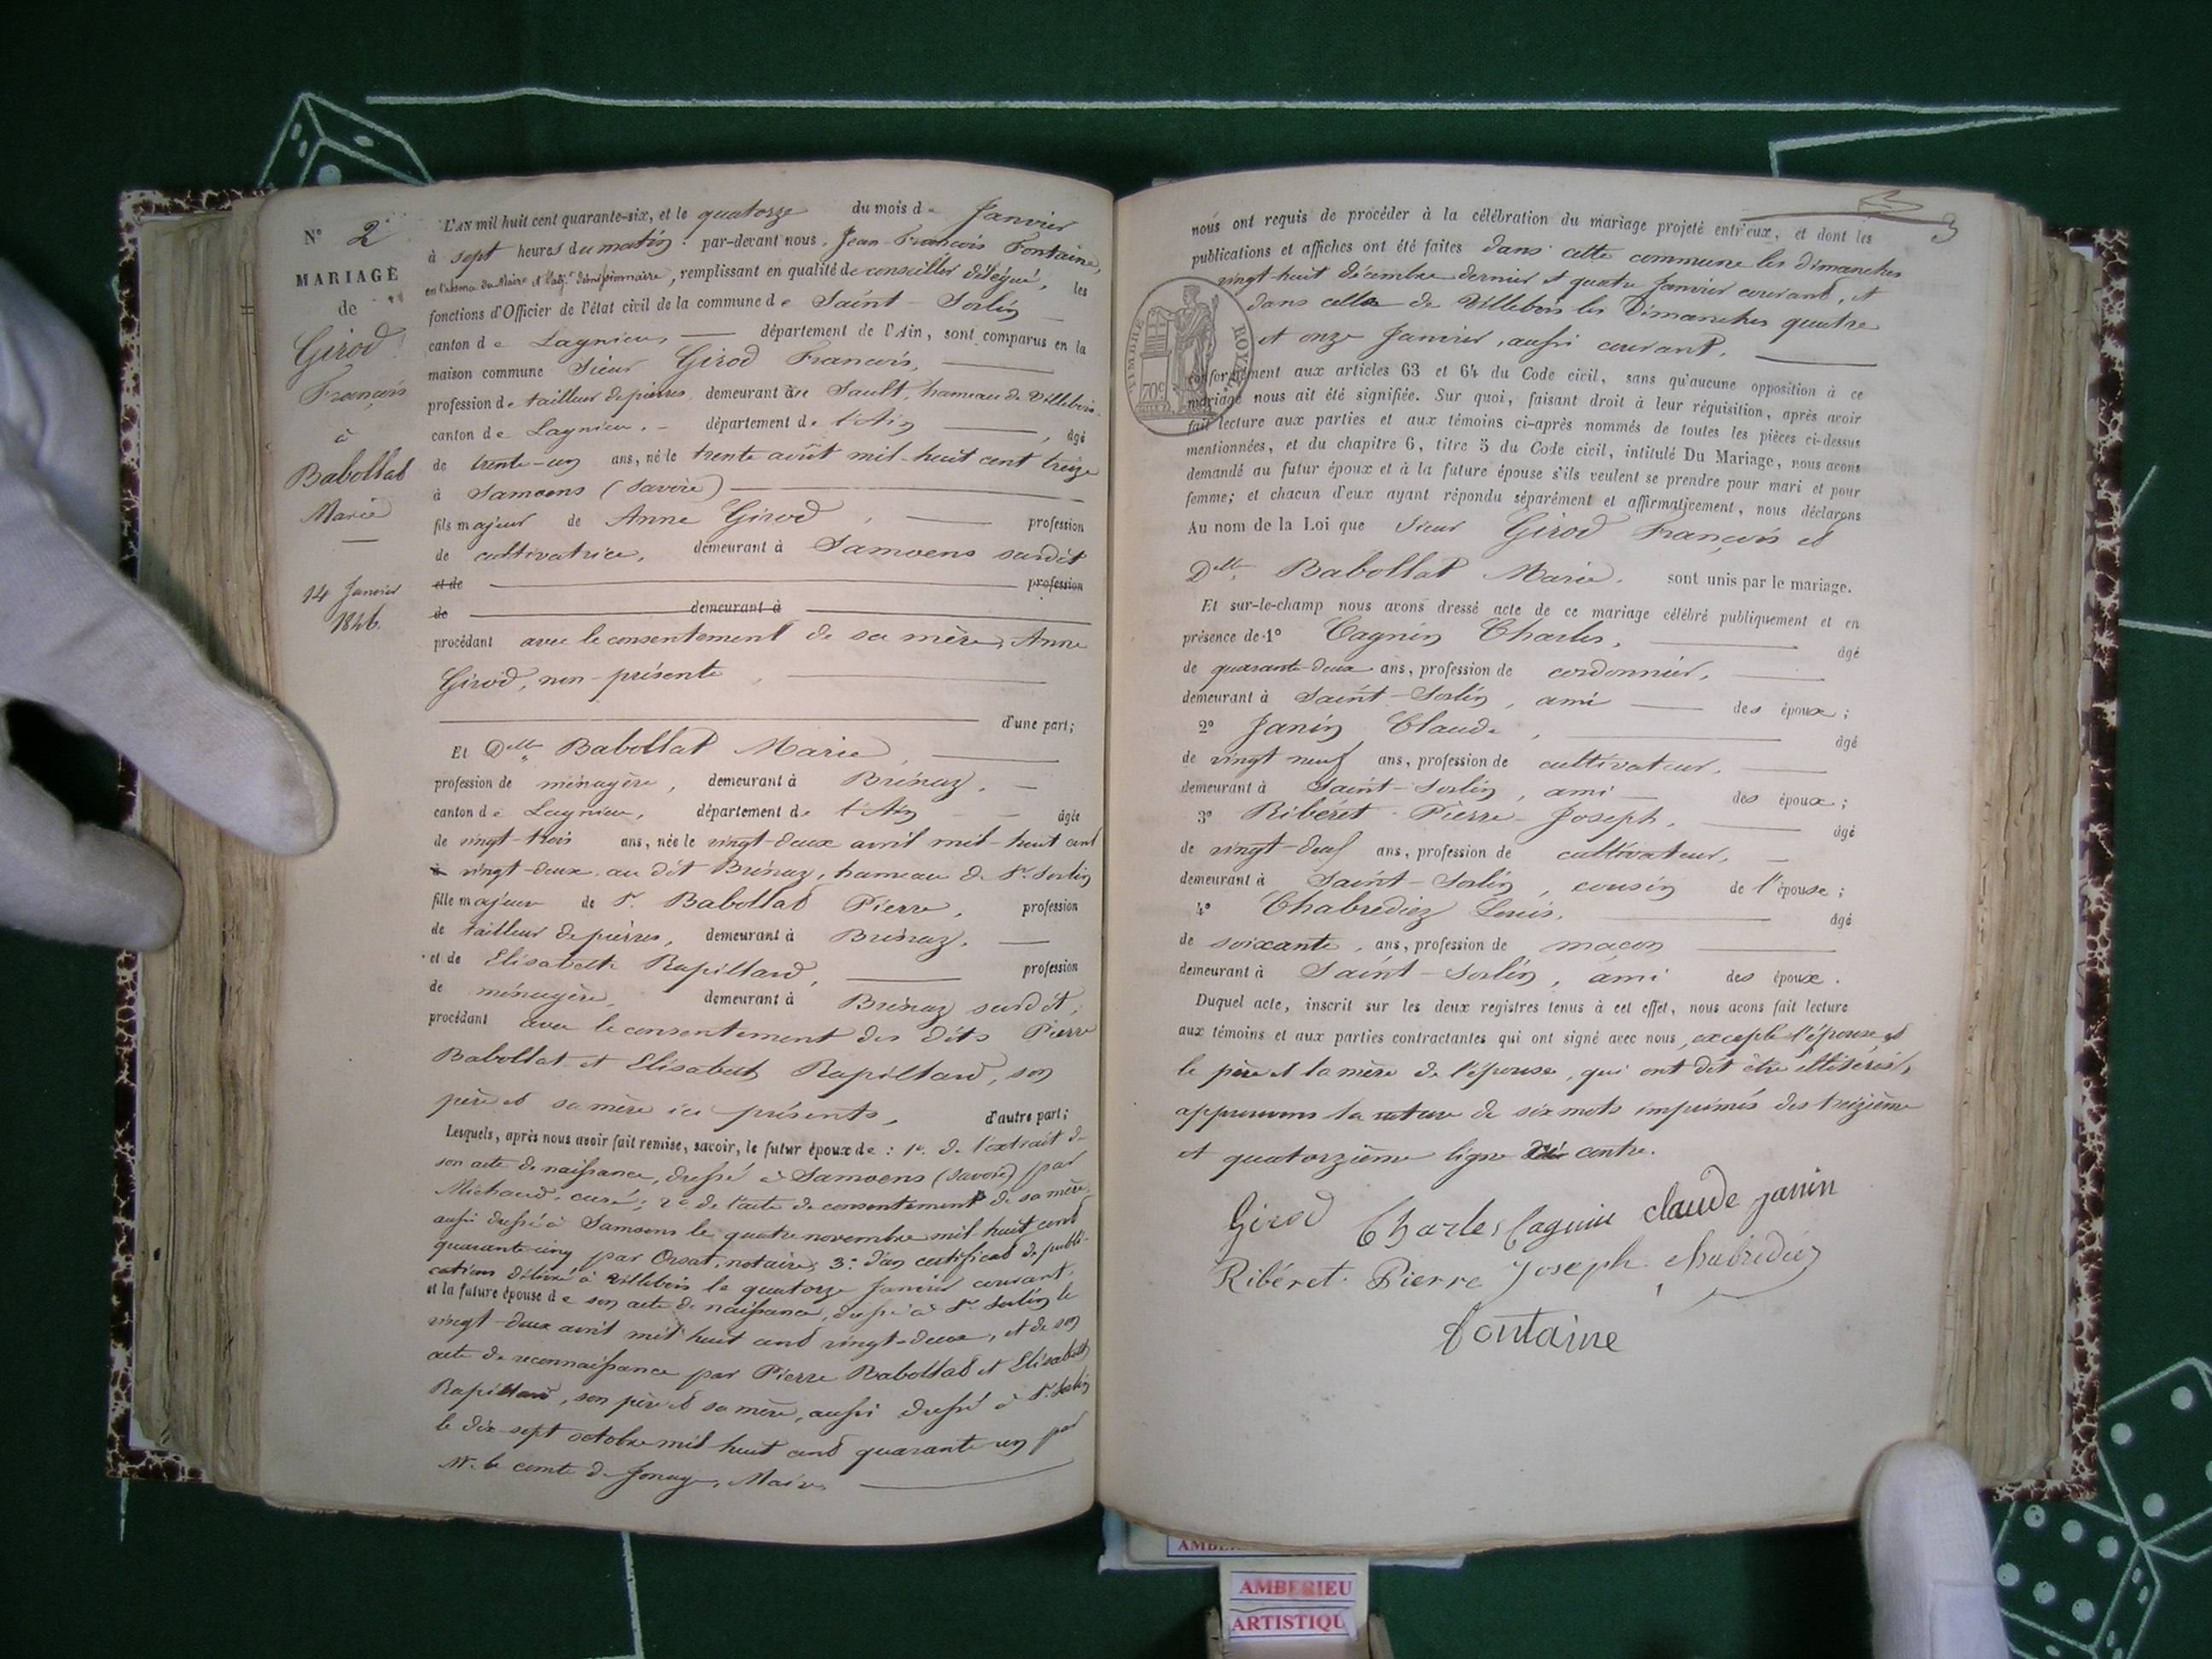 N° 2
MARIAGE
de
Girod
François
à
Babollat
Marie
14 Janvier
1846.
L'AN mil huit cent quarante-six, et le quatorze du mois de Janvier
à sept heures du matin, par-devant nous, Jean-François Fontaine,
en l'absence du Maire et l'adjt démissionnaire, remplissant en qualité de conseiller délégué, les
fonctions d'Officier de l'état civil de la commune de Saint-Sorlin
canton de Lagnieu, département de l'Ain, sont comparus en la
maison commune Sieur Girod François,
profession de tailleur de pierres, demeurant à Sault, hameau de Villebois
canton de Lagnieu, département de l'Ain, âgé
de trente-un ans, né le trente août mil-huit cent treize
à Samoens (Savoie)
fils majeur de Anne Girod, profession
de cultivatrice, demeurant à Samoens susdit
et de profession
de demeurant à
procédant avec le consentement de sa mère, Anne
Girod, non-présente
d'une part;
Et Delle Babollat Marie,
profession de ménagère, demeurant à Brénaz,
canton de Lagnieu, département de l'Ain âgée
de vingt-trois ans, née le vingt-deux avril mil-huit cent
à vingt-deux, au dit Brénaz, hameau de St Sorlin
fille majeure de Sr Babollat Pierre, profession
de tailleur de pierres, demeurant à Brénaz,
et de Elisabeth Rapillard, profession
de ménagère, demeurant à Brénaz susdit,
procédant avec le consentement des dits Pierre
Babollat et Elisabeth Rapillard, son
père et sa mère ici présents, d'autre part;
Lesquels, après nous avoir fait remise, savoir, le futur époux de : 1°. de l'extrait de
son acte de naissance, dressé à Samoens (Savoie) par
Michaud, curé; 2° de l'acte de consentement de sa mère,
aussi dressé à Samoens le quatre novembre mil-huit cent
quarante-cinq par Orsat, notaire; 3° d'un certificat de publi-
cations délivré à Villebois le quatorze Janvier courant,
et la future épouse de son acte de naissance, dressé à St Sorlin le
vingt-deux avril mil huit cent vingt-deux, et de son
acte de reconnaissance par Pierre Babollat et Elisabeth
Rapillard, son père et sa mère, aussi dressé à St Sorlin
le dix-sept octobre mil huit cent quarante-un par
Mr le comte de Jonage, Maire,
3
nous ont requis de procéder à la célébration du mariage projeté entr'eux, et dont les
publications et affiches ont été faites dans cette commune les dimanches
vingt-huit décembre dernier et quatre Janvier courant, et
dans celle de Villebois les Dimanches quatre
et onze Janvier, aussi courant,
TIMBRE ROYAL
70c
conformément aux articles 63 et 64 du Code civil, sans qu'aucune opposition à ce
mariage nous ait été signifiée. Sur quoi, faisant droit à leur réquisition, après avoir
fait lecture aux parties et aux témoins ci-après nommés de toutes les pièces ci-dessus
mentionnées, et du chapitre 6, titre 5 du Code civil, intitulé Du Mariage, nous avons
demandé au futur époux et à la future épouse s'ils veulent se prendre pour mari et pour
femme; et chacun d'eux ayant répondu séparément et affirmativement, nous déclarons
Au nom de la Loi que Sieur Girod François et
Delle Babollat Marie. sont unis par le mariage.
Et sur-le-champ nous avons dressé acte de ce mariage célébré publiquement et en
présence de 1° Cagnin Charles, âgé
de quarante-deux ans, profession de cordonnier,
demeurant à Saint-Sorlin, ami des époux;
2° Janin Claude, âgé
de vingt neuf ans, profession de cultivateur,
demeurant à Saint-Sorlin, ami des époux;
3° Ribéret Pierre-Joseph, âgé
de vingt-neuf ans, profession de cultivateur,
demeurant à Saint-Sorlin, cousin de l'épouse;
4° Chabrediez Louis, âgé
de soixante, ans, profession de maçon
demeurant à Saint-Sorlin, ami des époux.
Duquel acte, inscrit sur les deux registres tenus à cet effet, nous avons fait lecture
aux témoins et aux parties contractantes qui ont signé avec nous, excepté l'épouse, et
le père et la mère de l'épouse, qui ont dit être illitérés,
approuvons la rature de six mots imprimés des treizième
et quatorzième ligne contre.
Girod Charles Cagnin claude janin
Ribéret Pierre Joseph chabrediez
fontaine
AMBERIEU
ARTISTIQU